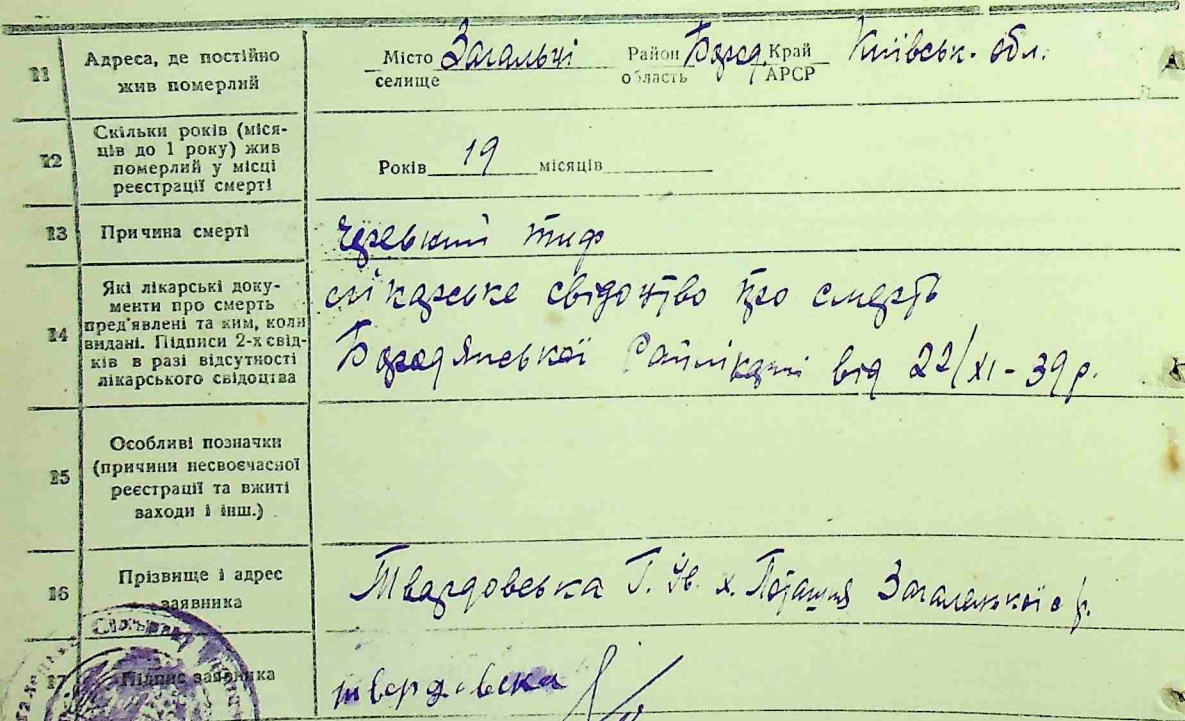 11 Адреса, де постійно
жив померлий
Місто Загальці Район Бород. Край Київськ. обл.
селище область АРСР
12 Скільки років (міся-
ців до 1 року) жив
померлий у місці
реєстрації смерті
Років 19 місяців
13 Причина смерті
черевний тиф
14 Які лікарські доку-
менти про смерть
пред'явлені та ким, коли
видані. Підписи 2-х свід-
ків в разі відсутності
лікарського свідоцтва
лікарське свідоцтво про смерть
Бородянської Райлікарні від 22/XI-39р.
15 Особливі позначки
(причини несвоєчасної
реєстрації та вжиті
заходи і інш.)
16 Прізвище і адрес
заявника
Твардовська Г. Ів. х. Поташня
17 Підпис заявника
твердовска